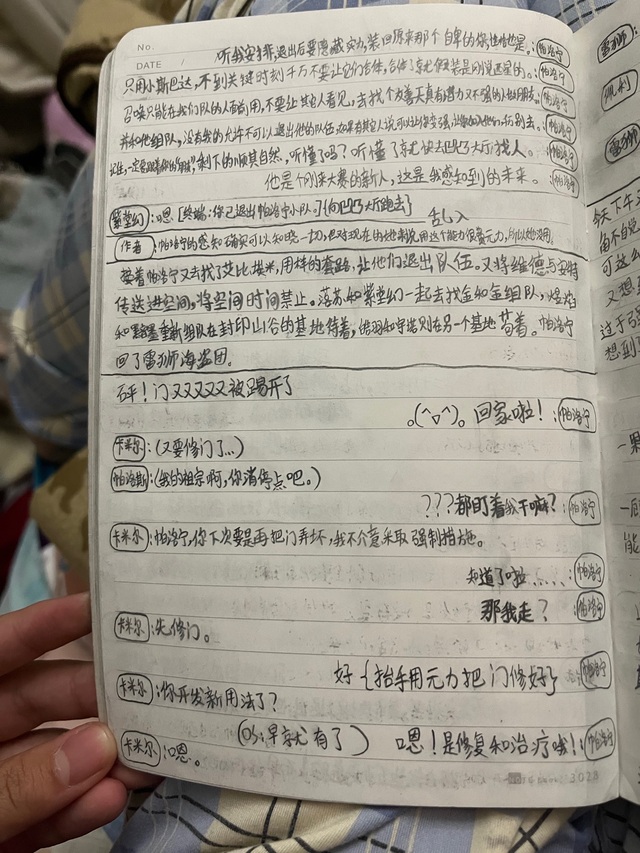 No.
DATE /
听我安排,退出后要隐藏实力,装回原来那个自卑的你,也是。:帕洛宁
只用小斯巴达,不到关键时刻千万不要让它们合体,合体了就优先装是刚觉醒的。:帕洛宁
召唤只能在我们队的人面前用,不要让其它人看见,去找个友善天真有潜力又不强的人做朋友。:帕洛宁
并和他组队,没有我的允许不可以退出他的队伍,如果有其它人说可以让你变强,让你加入他们,别去。:帕洛宁
记住,一定要,剩下的顺其自然,听懂了吗?听懂了就快去凹凸大厅找人。:帕洛宁
他是个刚来大赛的新人,这是我感知到的未来。:帕洛宁
紫堂幻:嗯[终端:你已退出帕洛宁小队。]{向凹凸大厅跑去}
乱入
作者:帕洛宁的感知确实可以知晓一切,但对现在的她来说用这个能力很费元力,所以她没用。
接着帕洛宁又去找了艾比埃米,用样的套路,让他们退出队伍。又将维德与安特
传送进空间,将空间时间禁止。落苏和紫堂幻一起去找金和金组队,煜焰
和墨重新组队在封印山谷的基地待着,则在另一个基地苟着。帕洛宁
回了雷狮海盗团。
砰!门又又又又又被踢开了
。(^▽^)。回家啦!:帕洛宁
卡米尔:(又要修门了...)
帕洛斯:(我的祖宗啊,你消停点吧。)
???都盯着我干嘛?:帕洛宁
卡米尔:帕洛宁,你下次要是再把门弄坏,我不介意采取强制措施。
知道了啦......:帕洛宁
那我走?:帕洛宁
卡米尔:先修门。
好{抬手用元力把门修好}:帕洛宁
卡米尔:你开发新用法了?
(OS:早就有了) 嗯!是修复和治疗哦!:帕洛宁
卡米尔:嗯。
3028
雷狮
佩利
雷狮